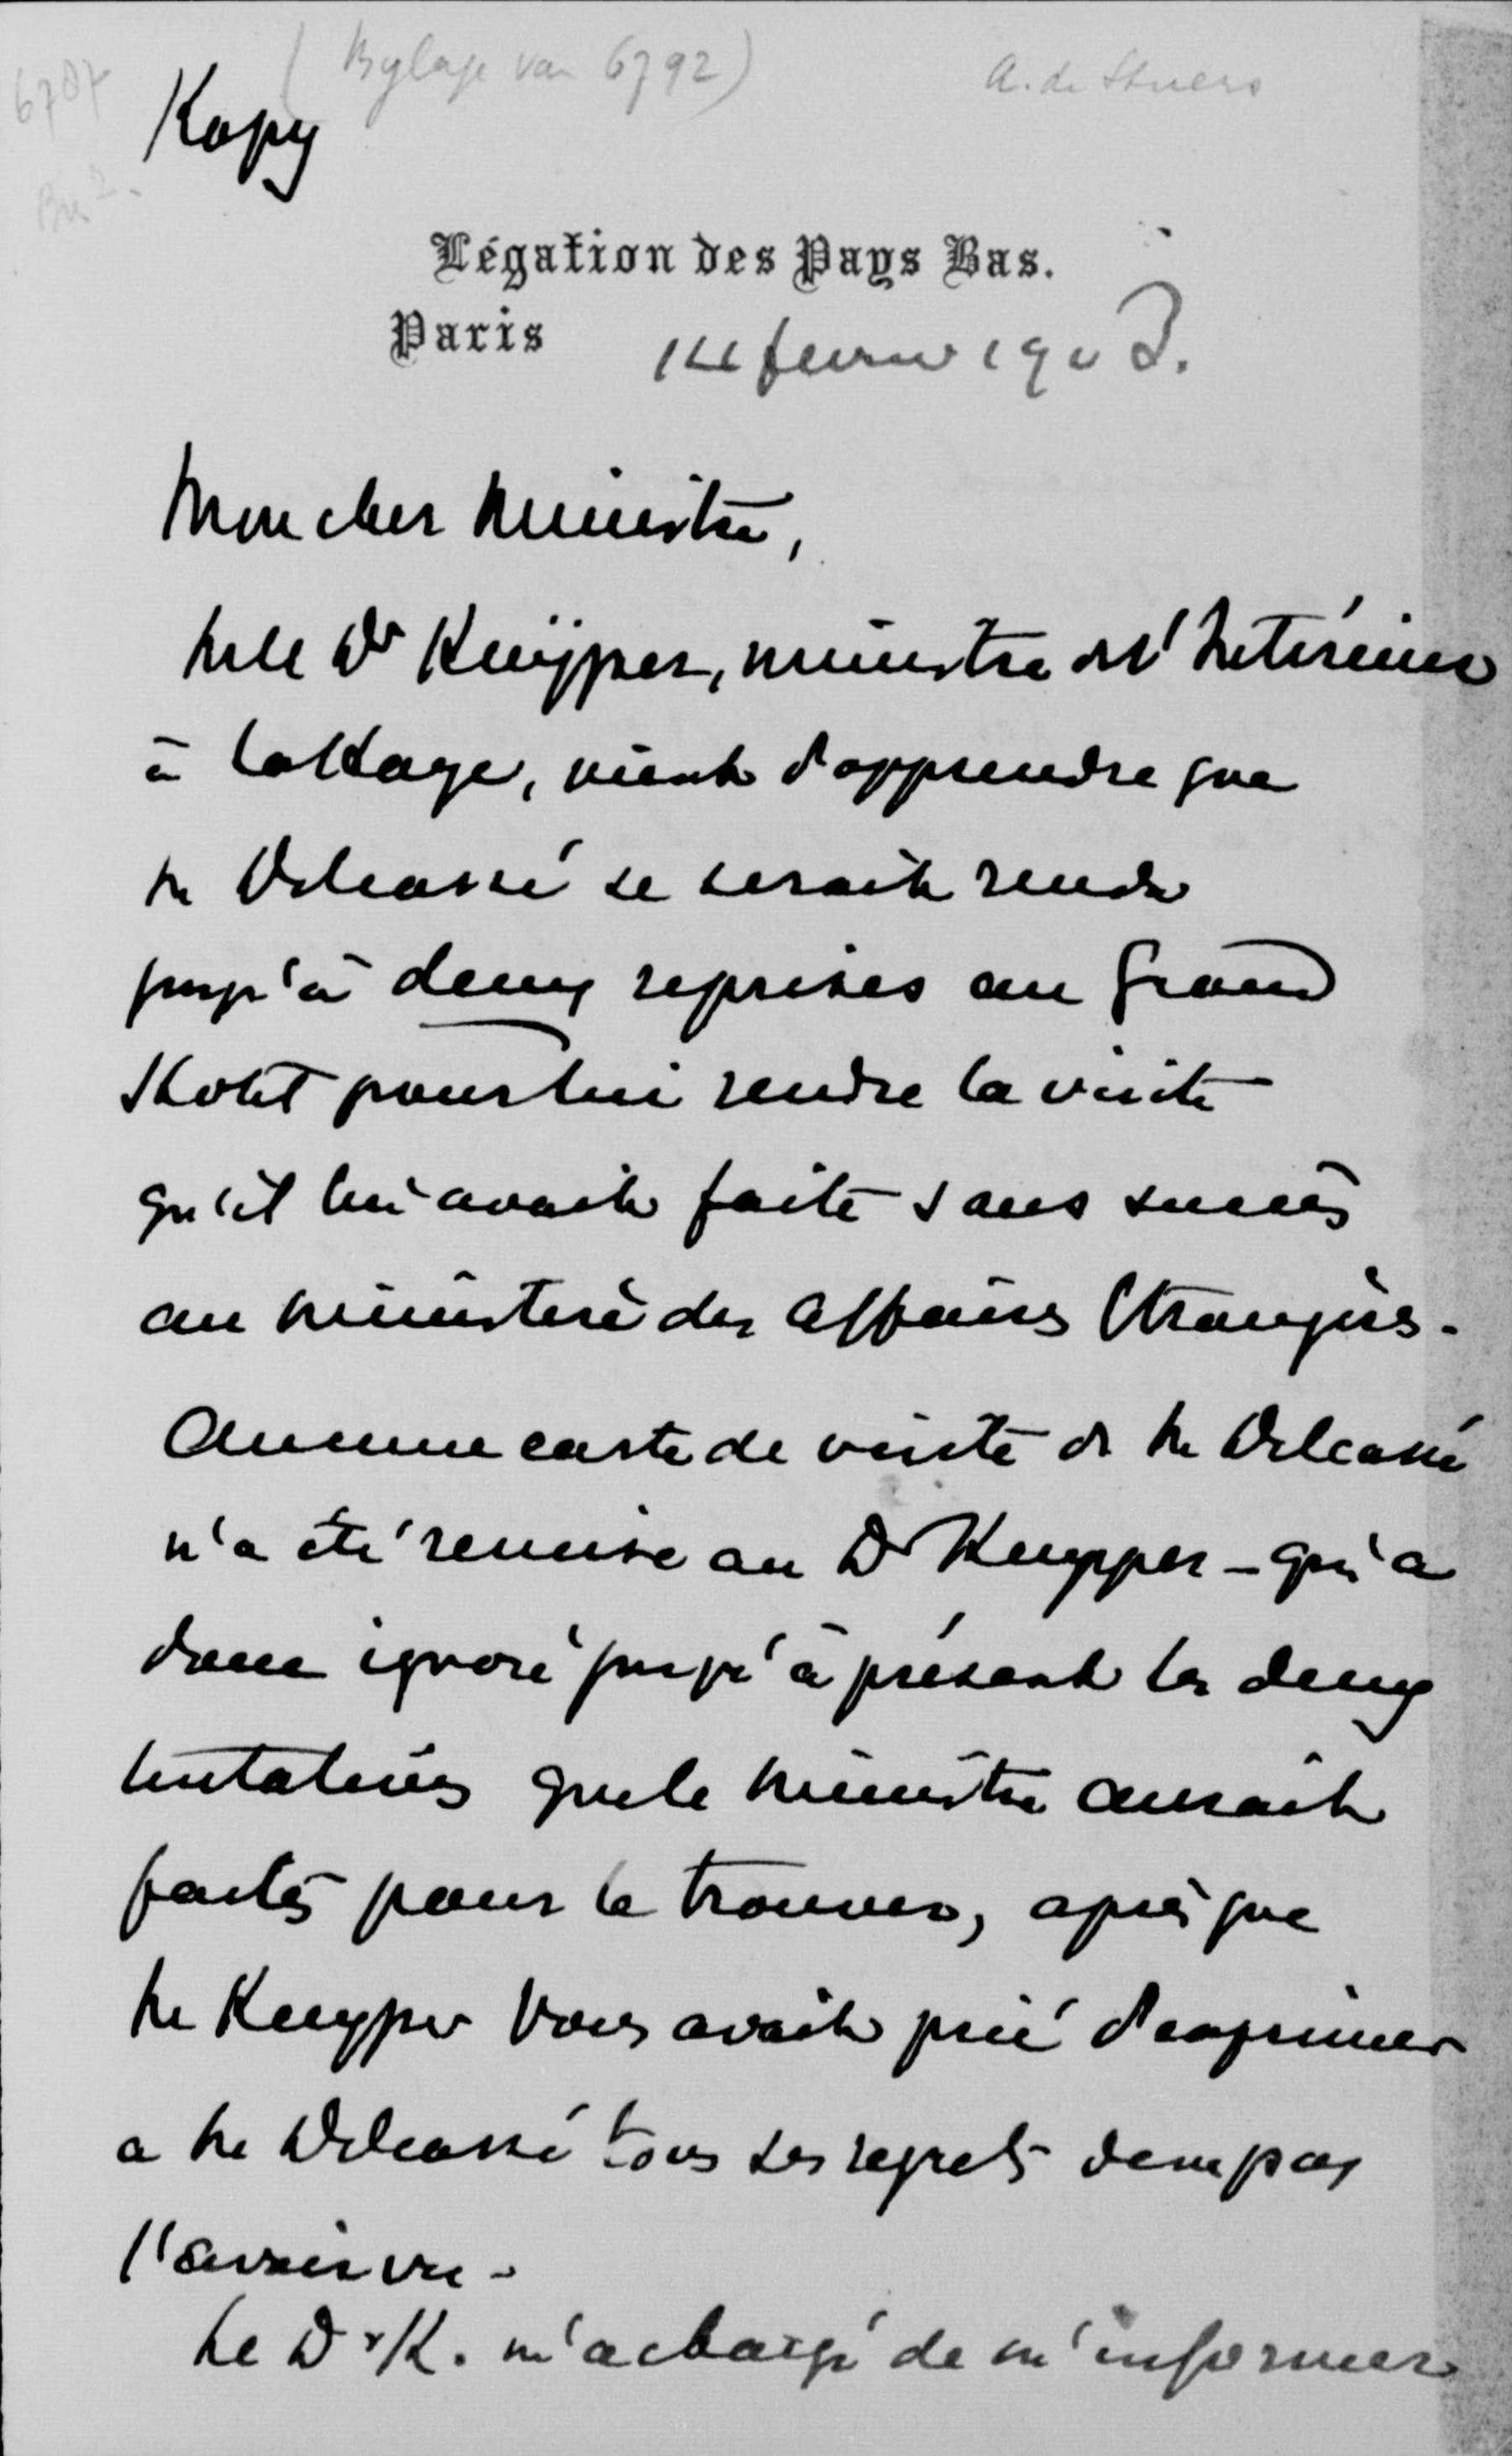 (Bylage van 6792)
A. de Stuers
6787
Kopy
Légation des Pays Bas.
Paris 14 fevrier 1903.
Mon cher Ministre,
M le Dr Kuijper, ministre de l'Intérieur
à la Haye, vient d'apprendre que
M Delcassé se serait rendu
jusqu'à deux reprises au Grand
Hotel pour lui rendre la visite
qu'il lui avait faite sans succès
au ministère des Affaires Etrangères.
Aucune carte de visite de M Delcassé
n'a été remise au Dr Kuyper - qui a
donc ignoré jusqu'à présent les deux
tentatives que le Ministre aurait
faites pour le trouver, après que
M Kuyper Vous avait prié d'exprimer
a M Delcassé tous ses regrets de ne pas
l'avoir vu -
Le Dr K. m'a chargé de m'informer